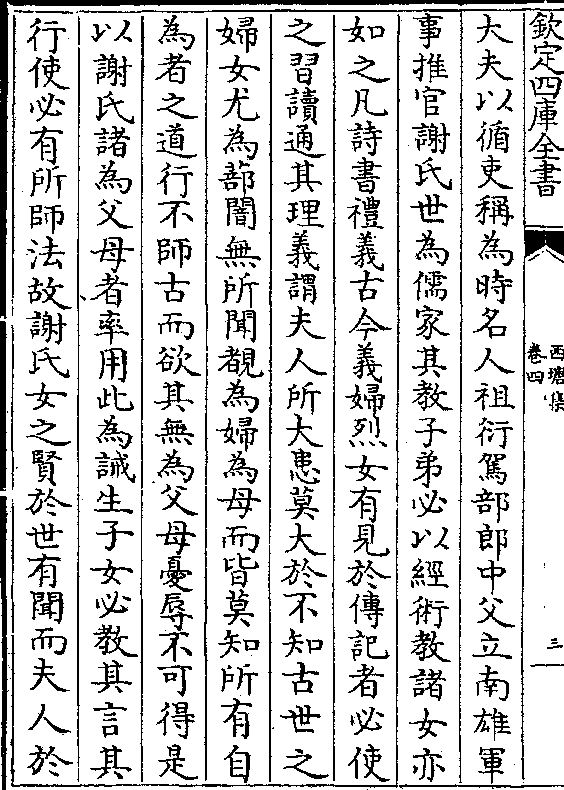 欽定四庫全書
西塘集
卷四
三
大夫以循吏稱為時名人祖衍駕部郎中父立南雄軍
事推官謝氏世為儒家其教子弟必以經術教諸女亦
如之凡詩書禮義古今義婦烈女有見於傳記者必使
之習讀通其理義謂夫人所大患莫大於不知古世之
婦女尤為蔀闇無所聞覩為婦為母而皆莫知所有自
為者之道行不師古而欲其無為父母憂辱不可得是
以謝氏諸為父母者率用此為誡生子女必教其言其
行使必有所師法故謝氏女之賢於世有聞而夫人於